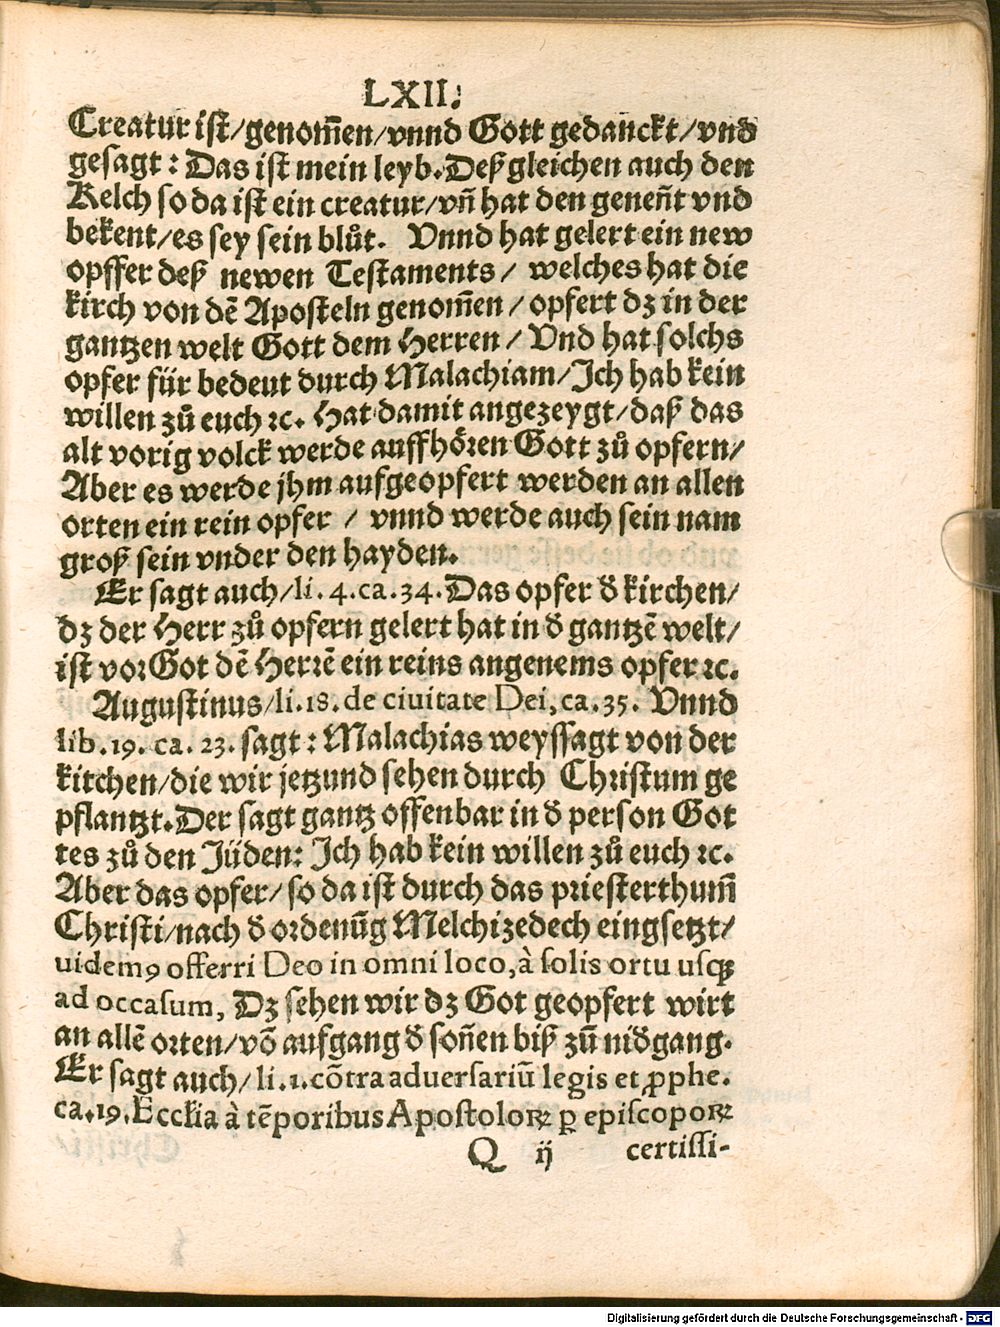 LXII.
Creatur ist/genom̃en/vnnd Gott gedanckt/vnd
gesagt: Das ist mein leyb. Deß gleichen auch den
Kelch so da ist ein creatur/vñ hat den geneñt vnd
bekent/es sey sein blůt. Vnnd hat gelert ein new
opffer deß newen Testaments/ welches hat die
kirch von dẽ Aposteln genom̃en/opfert dz in der
gantzen welt Gott dem Herren/ Vnd hat solchs
opfer für bedeut durch Malachiam/Ich hab kein
willen zů euch ꝛc. Hat damit angezeygt/daß das
alt vorig volck werde auffhören Gott zů opfern/
Aber es werde jhm aufgeopfert werden an allen
orten ein rein opfer / vnnd werde auch sein nam
groß sein vnder den hayden.
Er sagt auch/li.4.ca.34. Das opfer đ kirchen/
dz der Herr zů opfern gelert hat in đ gantzẽ welt/
ist vor Got dẽ Herrẽ ein reins angenems opfer ꝛc.
Augustinus/li.18. de ciuitate Dei, ca.35. Vnnd
lib.19. ca. 23. sagt: Malachias weyssagt von der
kirchen/die wir jetzund sehen durch Christum ge
pflantzt. Der sagt gantz offenbar in đ person Got
tes zů den Jüden: Ich hab kein willen zů euch ꝛc.
Aber das opfer/ so da ist durch das priesterthum̃
Christi/nach đ ordenũg Melchizedech eingsetzt/
uidemꝰ offerri Deo in omni loco, à solis ortu usq́ꝫ
ad occasum, Dz sehen wir dz Got geopfert wirt
an allẽ orten/võ aufgang đ soñen biß zů nidgang.
Er sagt auch/ li.1. cõtra aduersariũ legis et ꝓphe.
ca.19. Ecclia à tẽporibus Apostoloꝝ ꝑ episcopoꝝ
Q ij certissi-
Digitalisierung gefördert durch die Deutsche Forschungsgemeinschaft - DFG